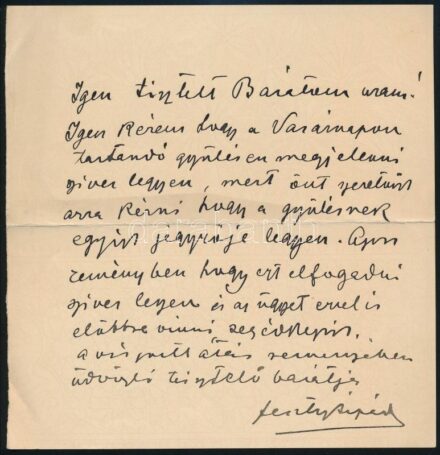 Igen tisztelt Barátom uram!
Igen kérem hogy a Vasárnapon
tartandó gyűlésen megjelenni
szives legyen, mert önt szeretnők
arra kérni hogy a gyűlésnek
egyik jegyzője legyen. Azon
reményben hogy ezt elfogadni
szives leszen és az ügyet evvel is
előbbre vinni
a viszontlátás reményében
üdvözlő tisztelő barátja
Feszty Árpád